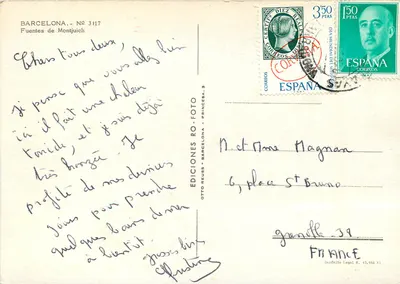 BARCELONA. - Nº 3117
Fuentes de Montjuich
Chers tous deux,
Je pense que vous allez bien
ici il fait une chaleur
torride, et je suis déjà
très bronzée. Je
profite de mes derniers
jours pour prendre
quelques bains de mer
à bientôt.
EDICIONES RO-FOTO
BARCELONA
3,50 PTAS
CORREOS
ESPAÑA
1,50 PTAS
ESPAÑA
CORREOS
M et Mme Magnan
6, place St Bruno
Grenoble - 38
FRANCE